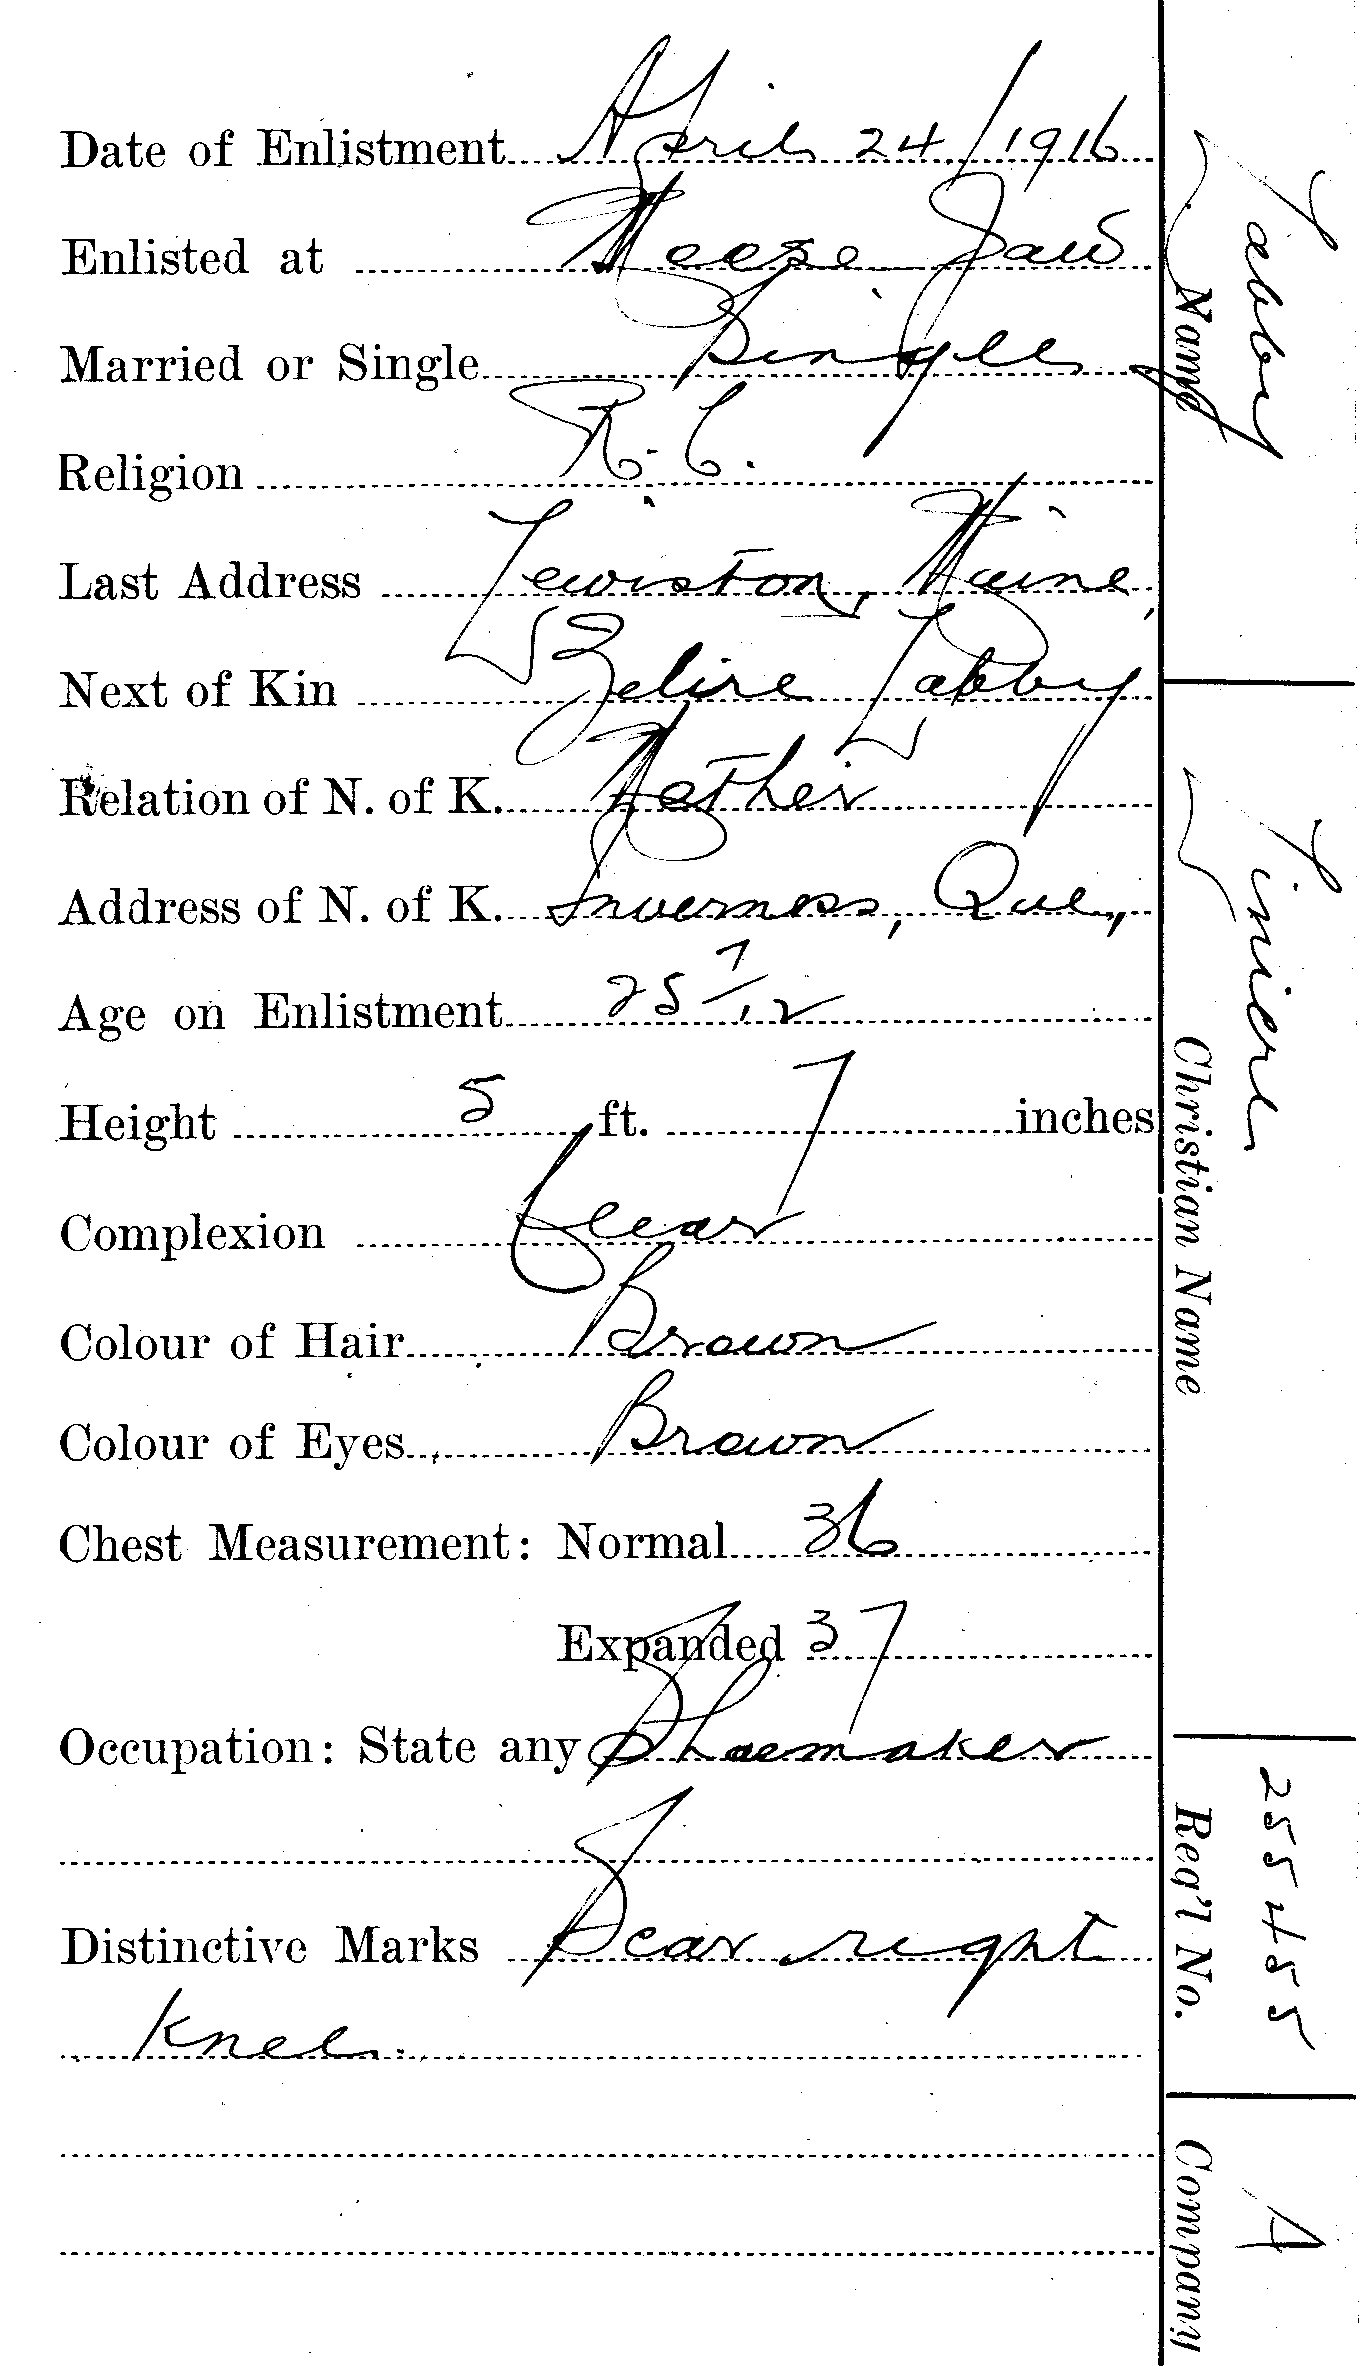 Date of Enlistment April 24/1916
Enlisted at Moose Jaw
Married or Single Single
Religion R. C.
Last Address Lewiston, Maine,
Next of Kin Zelire Labby
Relation of N. of K. Mother
Address of N. of K. Inverness, Que.,
Age on Enlistment 25 7/12
Height 5 ft. 7 inches
Complexion Clear
Colour of Hair Brown
Colour of Eyes Brown
Chest Measurement: Normal 36
Expanded 37
Occupation: State any Shoemaker
Distinctive Marks Scar right
Knee.
Labby
Name
Christian Name
255455
Reg'l No.
A
Company